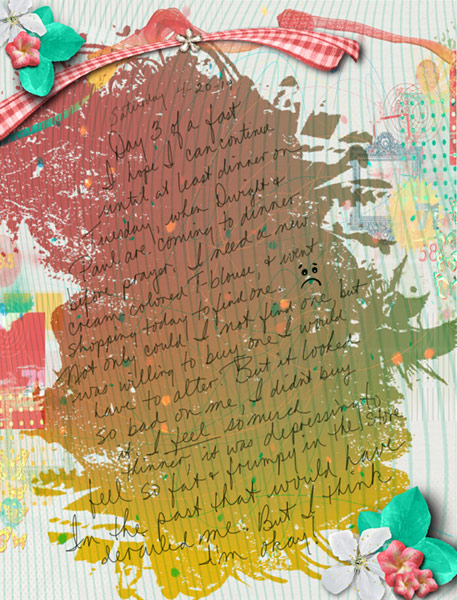 Saturday 4-20-
Day 3 of a fast
I hope I can contened
until at least dinner on
Tuesday, when Dwight &
Paul are coming to dinner
before prayer. I need a new
cream colored T-blouse, & went
shopping today to find one.
Not only could I not find one, but
was willing to buy one I would
have to alter. But it looked
so bad on me, I didn't buy
it. I feel so much
thinner, it was depressing to
fell so fat & frumpy in the store
In the past that would have
derailed me. But I think
I'm okay!
58